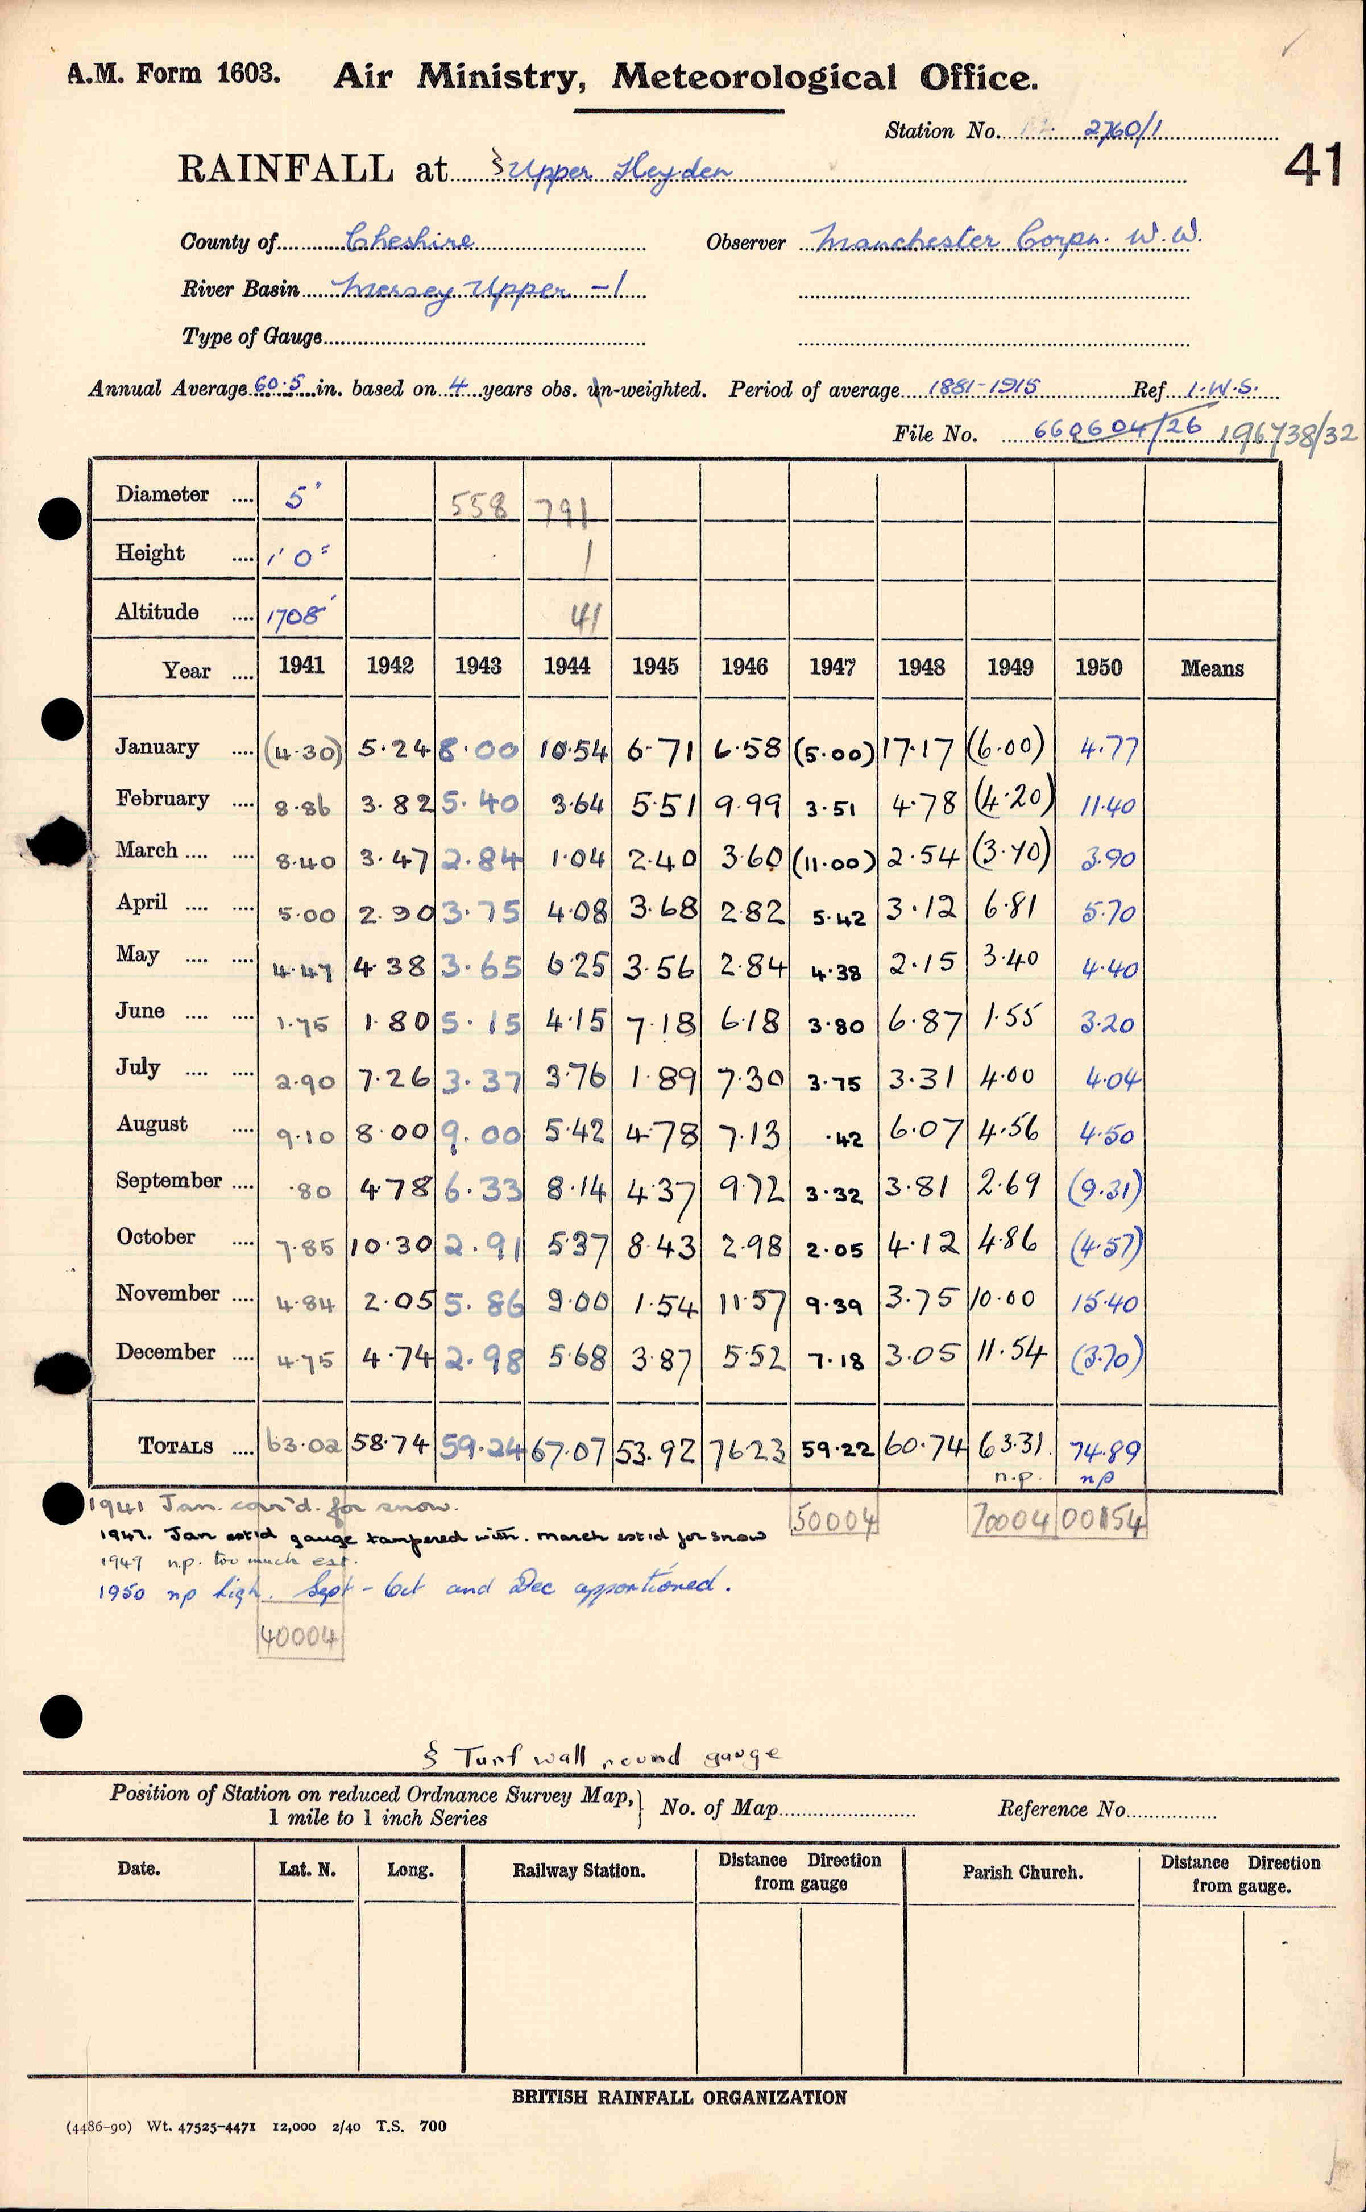 A.M. Form 1603. Air Ministry, Meteorological Office.
Station No. 2760/1
RAINFALL at § Upper Heyden 41
County of Cheshire Observer Manchester Corpn. W.W.
River Basin Mersey Upper -1
Type of Gauge
Annual Average 60.5 in. based on 4 years obs. un-weighted. Period of average 1881-1915 Ref. I.W.S.
File No. 660604/26 196738/32
Diameter .... 5" 558 791
Height .... 1' 0" 1
Altitude .... 1708' 41
Year .... 1941 1942 1943 1944 1945 1946 1947 1948 1949 1950 Means
January .... (4.30) 5.24 8.00 10.54 6.71 6.58 (5.00) 17.17 (6.00) 4.77
February .... 8.86 3.82 5.40 3.64 5.51 9.99 3.51 4.78 (4.20) 11.40
March .... .... 8.40 3.47 2.84 1.04 2.40 3.60 (11.00) 2.54 (3.70) 3.90
April .... .... 5.00 2.90 3.75 4.08 3.68 2.82 5.42 3.12 6.81 5.70
May .... .... 4.47 4.38 3.65 6.25 3.56 2.84 4.38 2.15 3.40 4.40
June .... .... 1.75 1.80 5.15 4.15 7.18 6.18 3.80 6.87 1.55 3.20
July .... .... 2.90 7.26 3.37 3.76 1.89 7.30 3.75 3.31 4.00 4.04
August .... 9.10 8.00 9.00 5.42 4.78 7.13 .42 6.07 4.56 4.50
September .... .80 4.78 6.33 8.14 4.37 9.72 3.32 3.81 2.69 (9.31)
October .... 7.85 10.30 2.91 5.37 8.43 2.98 2.05 4.12 4.86 (4.57)
November .... 4.84 2.05 5.86 9.00 1.54 11.57 9.39 3.75 10.00 15.40
December .... 4.75 4.74 2.98 5.68 3.87 5.52 7.18 3.05 11.54 (3.70)
TOTALS .... 63.02 58.74 59.24 67.07 53.92 76.23 59.22 60.74 63.31 74.89
n.p. np
1941 Jan. corr'd. for snow. 50004 70004 00154
1947. Jan est'd gauge tampered with. March est'd for snow
1949 n.p. too much est.
1950 np high. Sept - Oct and Dec apportioned.
40004
§ Turf wall round gauge
Position of Station on reduced Ordnance Survey Map, 1 mile to 1 inch Series } No. of Map Reference No.
Date. Lat. N. Long. Railway Station. Distance from gauge Direction Parish Church. Distance Direction from gauge.
BRITISH RAINFALL ORGANIZATION
(4486-90) Wt. 47525-4471 12,000 2/40 T.S. 700